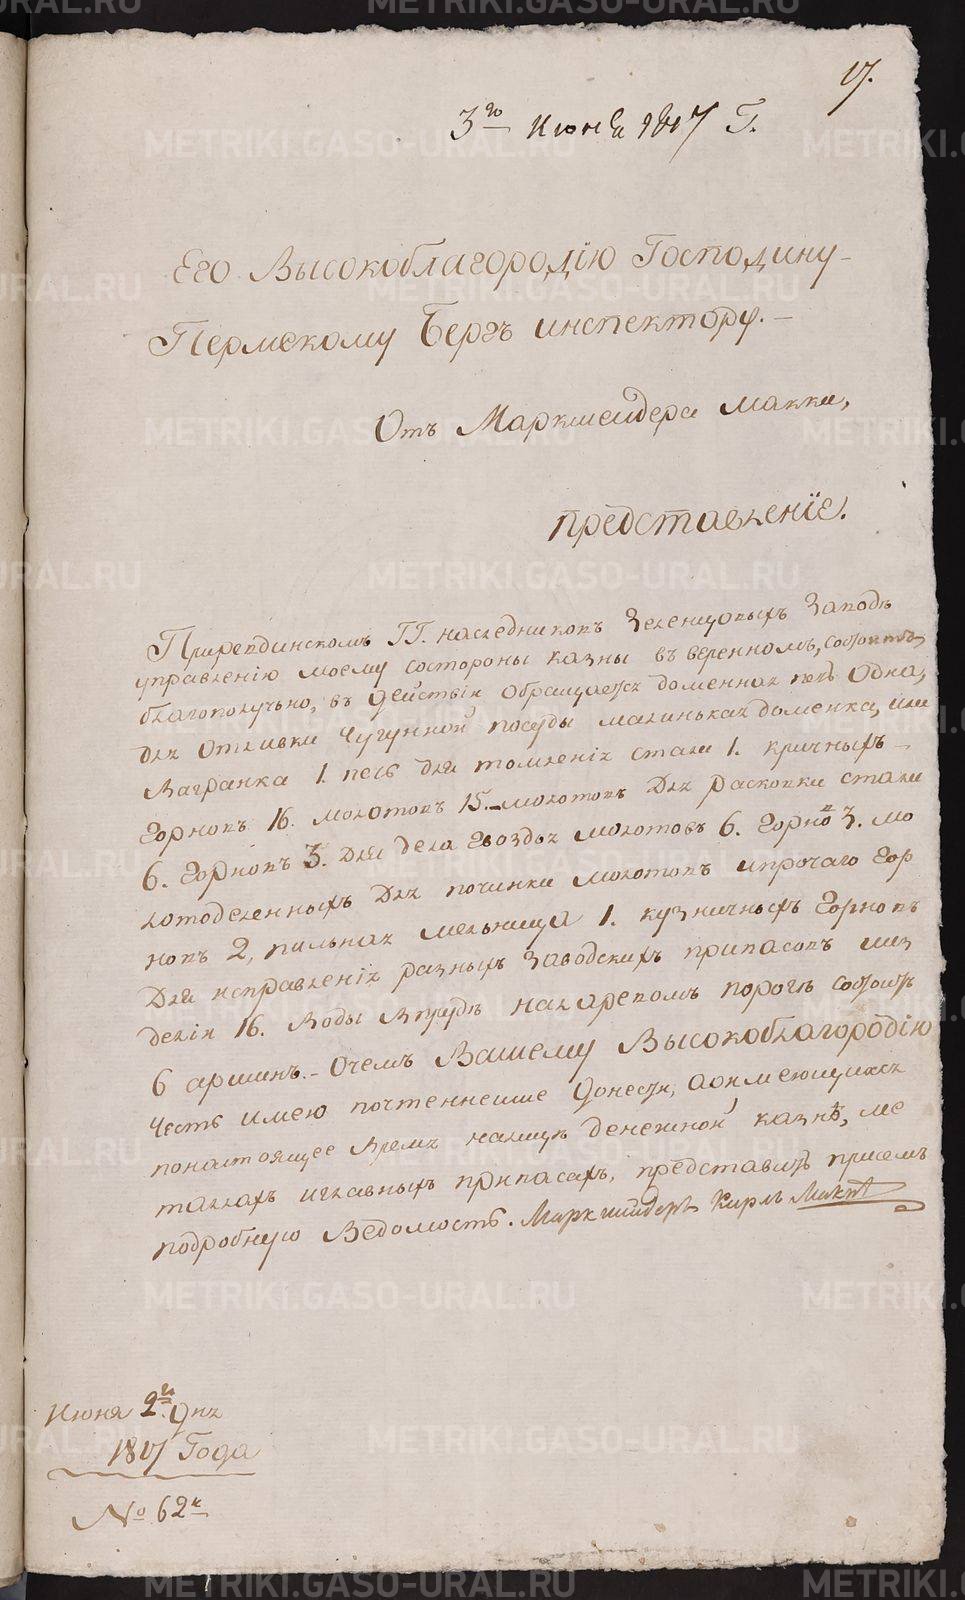 17.
3го Июня 1817 Г.
Его Высокоблагородiю Господину
Пермскому Бергъ инспектору.
Отъ Маркшейдера Макке,
представленiе.
Приревдинскомъ ГГ. наследниковъ Зеленцовыхъ Заводѣ
управленiю моему состороны казны въ веренномъ, состоитъ
благополучьно, въ действiи обращается доменная печь Одна,
для отливки чугунной посуды малинькая доменка, или
Вагранка 1. печь для томленiя стали 1. кричныхъ
горновъ 16. молотовъ 15. молотовъ для расковки стали
6. горновъ 3. для дела гвоздья молотовъ 6. горновъ 3. мо
лотоделенныхъ для починки молотовъ ипрочаго гор
новъ 2, пильная мельница 1. кузничныхъ горновъ
для исправленiя разныхъ заводскихъ припасовъ ииз
делiи 16. Воды впрудѣ наларевомъ порогѣ состоитъ
6 аршинъ. Очемъ Вашему Высокоблагородiю
Честь имею почтеннеише донести, аоимеющихся
понастоящее время налицъ денежной казнѣ, ме
таллахъ иглавныхъ припасахъ, представить приемъ
подробную Ведомость. Маркшейдеръ Карлъ Макке
Июня 2го дня
1817 Года
№ 62й
METRIKI.GASO-URAL.RU